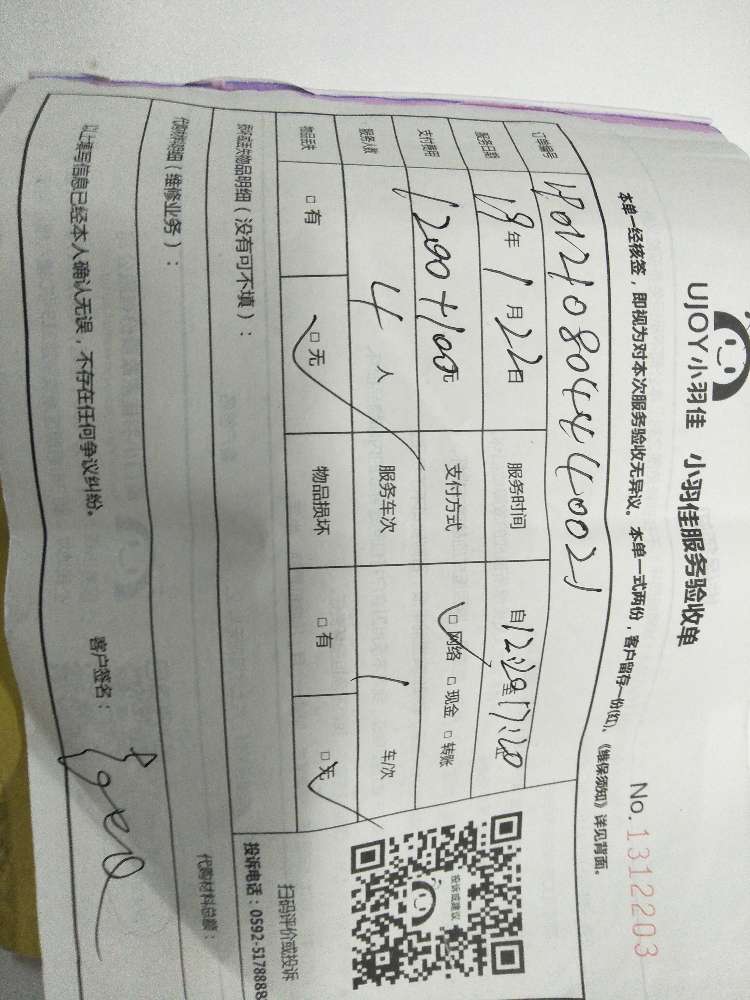 UJOY小羽佳 小羽佳服务验收单
No.1312203
本单一经核签，即视为对本次服务验收无异议。本单一式两份，客户留存一份(红)、《维保须知》详见背面。
订单编号
服务日期 19年1月22日 服务时间 自12:20至17:20
支付费用 1200+100元 支付方式 □网络 □现金 □转账
服务人数 4人 服务车次 1 车/次
物品丢失 □有 □无 物品损坏 □有 □无
损坏丢失物品明细（没有可不填）：
扫码评价或投诉
投诉或建议
投诉电话：0592-5178888
代购材料明细（维修业务）： 代购材料总额：
以上填写信息已经本人确认无误，不存在任何争议纠纷。 客户签名：